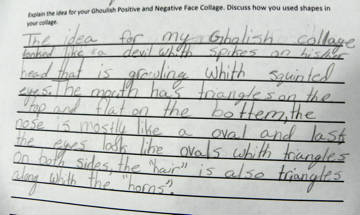 Explain the idea for your Ghoulish Positive and Negative Face Collage. Discuss how you used shapes in
your collage.
The idea for my Gholish collage
looked like a devil whith spikes on his
head that is growling whith squinted
eyes. The mouth has triangles on the
top and flat on the bottem, the
nose is mostly like a oval and last
the eyes look like ovals whith triangles
on both sides, the "hair" is also triangles
along whith the "horns".